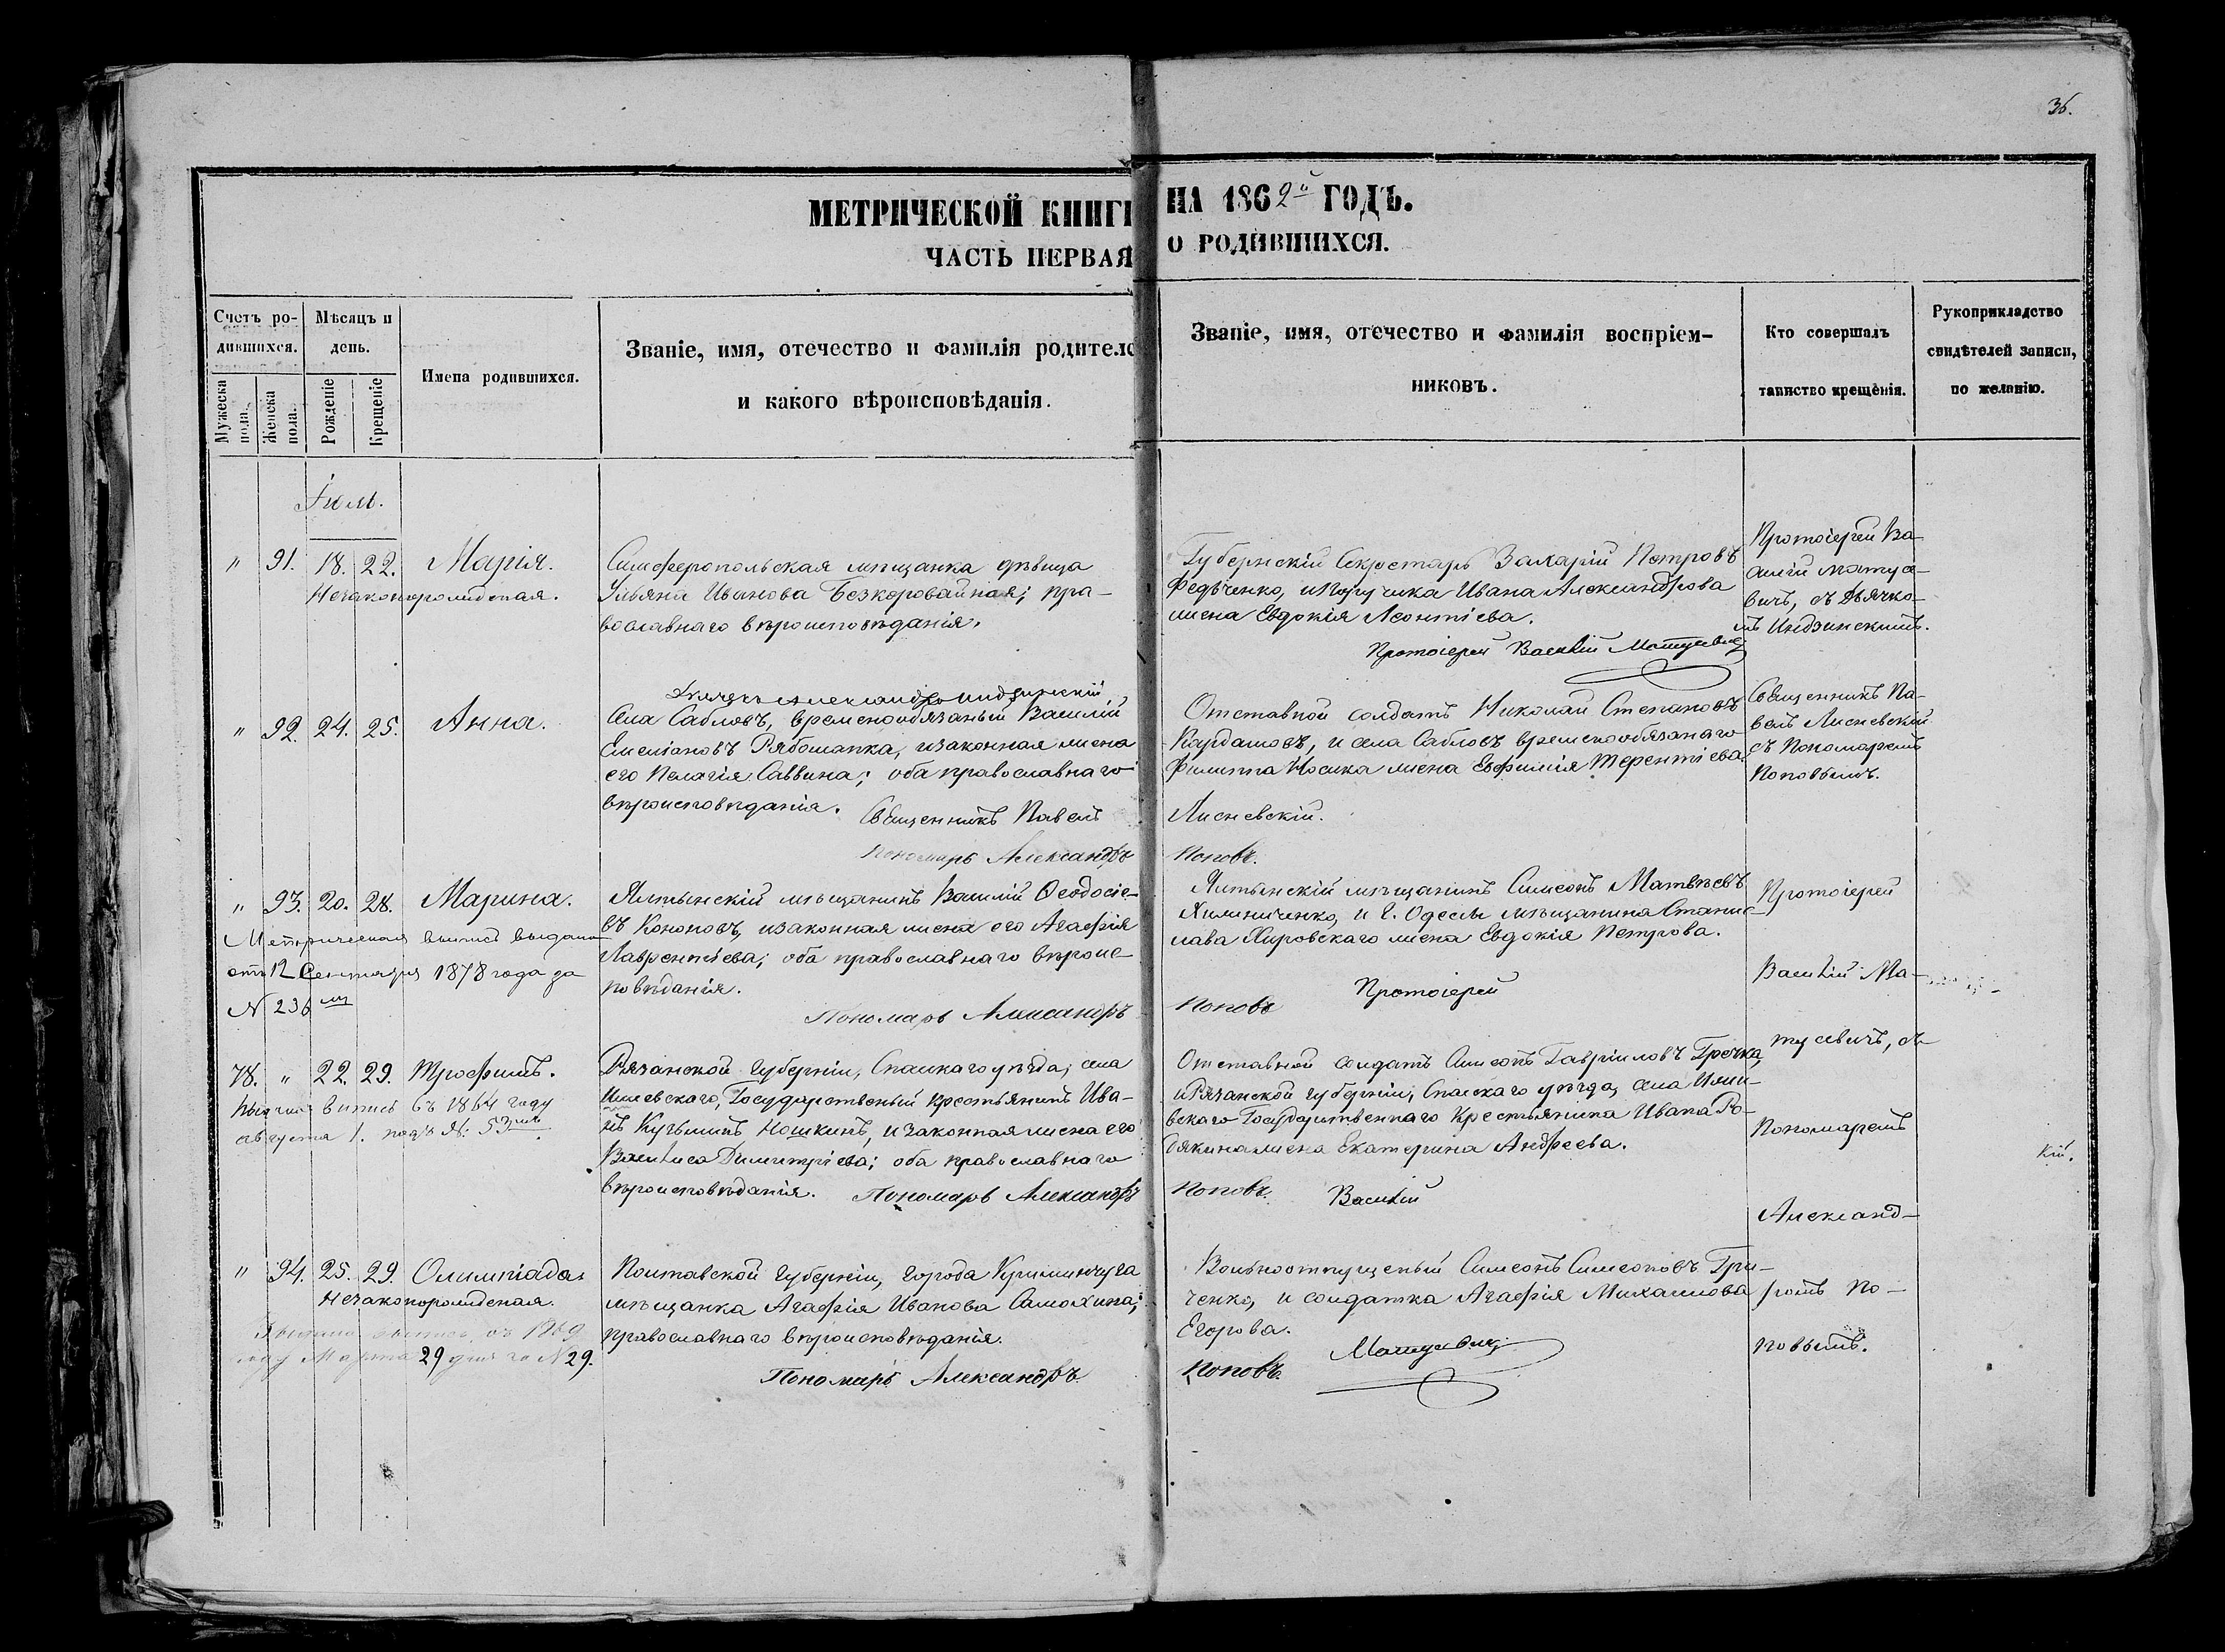 36.
МЕТРИЧЕСКОЙ КНИГИ НА 1862й ГОДЪ.
ЧАСТЬ ПЕРВАЯ О РОДИВШИХСЯ.
Счетъ родившихся.
Мужеска пола.
Женска пола.
Мѣсяцъ и день.
Рожденіе
Крещеніе
Имена родившихся.
Званіе, имя, отечество и фамилія родителе
и какого вѣроисповѣданія.
Званіе, имя, отечество и фамилія воспріем-
никовъ.
Кто совершалъ
таинство крещенія.
Рукоприкладство
свидѣтелей записи,
по желанію.
Іюль.
" 91. 18. 22. Марія.
Незаконорожденая.
Симферопольская мѣщанка дѣвица
Ульяна Иванова Безкоровайная; пра-
вославнаго вѣроисповѣданія.
Губернскій Секретарь Захарій Петровъ
Федѣченко, и Поручика Ивана Александрова
жена Евдокія Леонтіева.
Протоіерей Василій Матусевичъ
Протоіерей Ва-
силій Матусе-
вичъ, съ Дьячко-
мъ Индзинскимъ.
Дьячекъ Александръ Индзинскій
" 92. 24. 25. Анна.
Села Сабловъ, временообязаный Василій
Емеліановъ Рябошапка, и законная жена
его Пелагія Саввина; оба православнаго
вѣроисповѣданія.
Священникъ Павелъ
Пономарь Александръ
Отставной солдатъ Николай Степановъ
Кардашовъ, и села Сабловъ временообязанаго
Филиппа Носика жена Евфимія Терентіева.
Лисневскій.
Поповъ.
Священникъ Па-
велъ Лисневскій
съ Пономаремъ
Поповымъ.
" 93. 20. 28. Марина.
Метрическая выпись выдана
отъ 12 Сентября 1878 года за
N 236
Ялтынскій мѣщанинъ Василій Ѳеодосіе-
въ Кононовъ, и законная жена его Агафія
Лаврентіева; оба православнаго вѣроис-
повѣданія.
Пономарь Александръ
Ялтынскій мѣщанинъ Симеонъ Матвѣевъ
Хилиниченко, и г. Одессы мѣщанина Станис-
лава Хировскаго жена Евдокія Петрова.
Протоіерей
Поповъ
Протоіерей
Василій Ма-
тусевичъ, съ
Пономаремъ
Александ-
ромъ По-
повымъ.
78. " 22. 29. Трофимъ.
выпись въ 1864 году
августа 1. подъ №. 53мъ
Рязанской губерніи, Спаскаго уѣзда, села
Ижевскаго, Государственый крестьянинъ Ива-
нъ Кузьминъ Ношкинъ, и законная жена его
Василиса Димитріева; оба православнаго
вѣроисповѣданія.
Пономарь Александръ
Отставной солдатъ Симеонъ Гавріиловъ Гречка,
и Рязанской губерніи, Спаскаго уѣзда, села Ижи-
вскаго Государственнаго Крестьянина Ивана Ро-
дякина жена Екатерина Андреева.
Поповъ.
Василій
кій.
" 94. 25. 29. Олимпіада.
Незаконорожденая.
выпись въ 1869
году Марта 29 дня за N 29.
Полтавской губерніи, города Кримінчуга
мѣщанка Агафія Иванова Самохина;
православнаго вѣроисповѣданія.
Пономарь Александръ.
Вольноотпущеный Симеонъ Симеоновъ Гри-
ченко, и солдатка Агафія Михаилова
Егорова.
Матусевичъ
Поповъ.